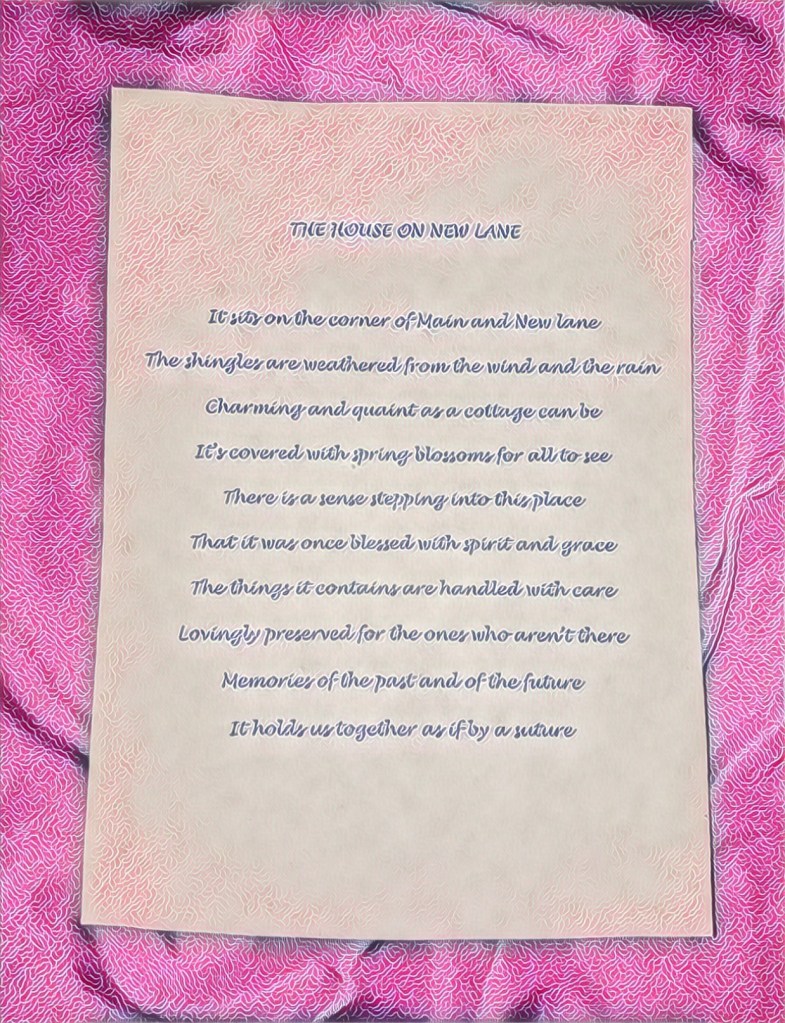 THE HOUSE ON NEW LANE
It sits on the corner of Main and New lane
The shingles are weathered from the wind and the rain
Charming and quaint as a cottage can be
It's covered with spring blossoms for all to see
There is a sense stepping into this place
That it was once blessed with spirit and grace
The things it contains are handled with care
Lovingly preserved for the ones who aren't there
Memories of the past and of the future
It holds us together as if by a suture